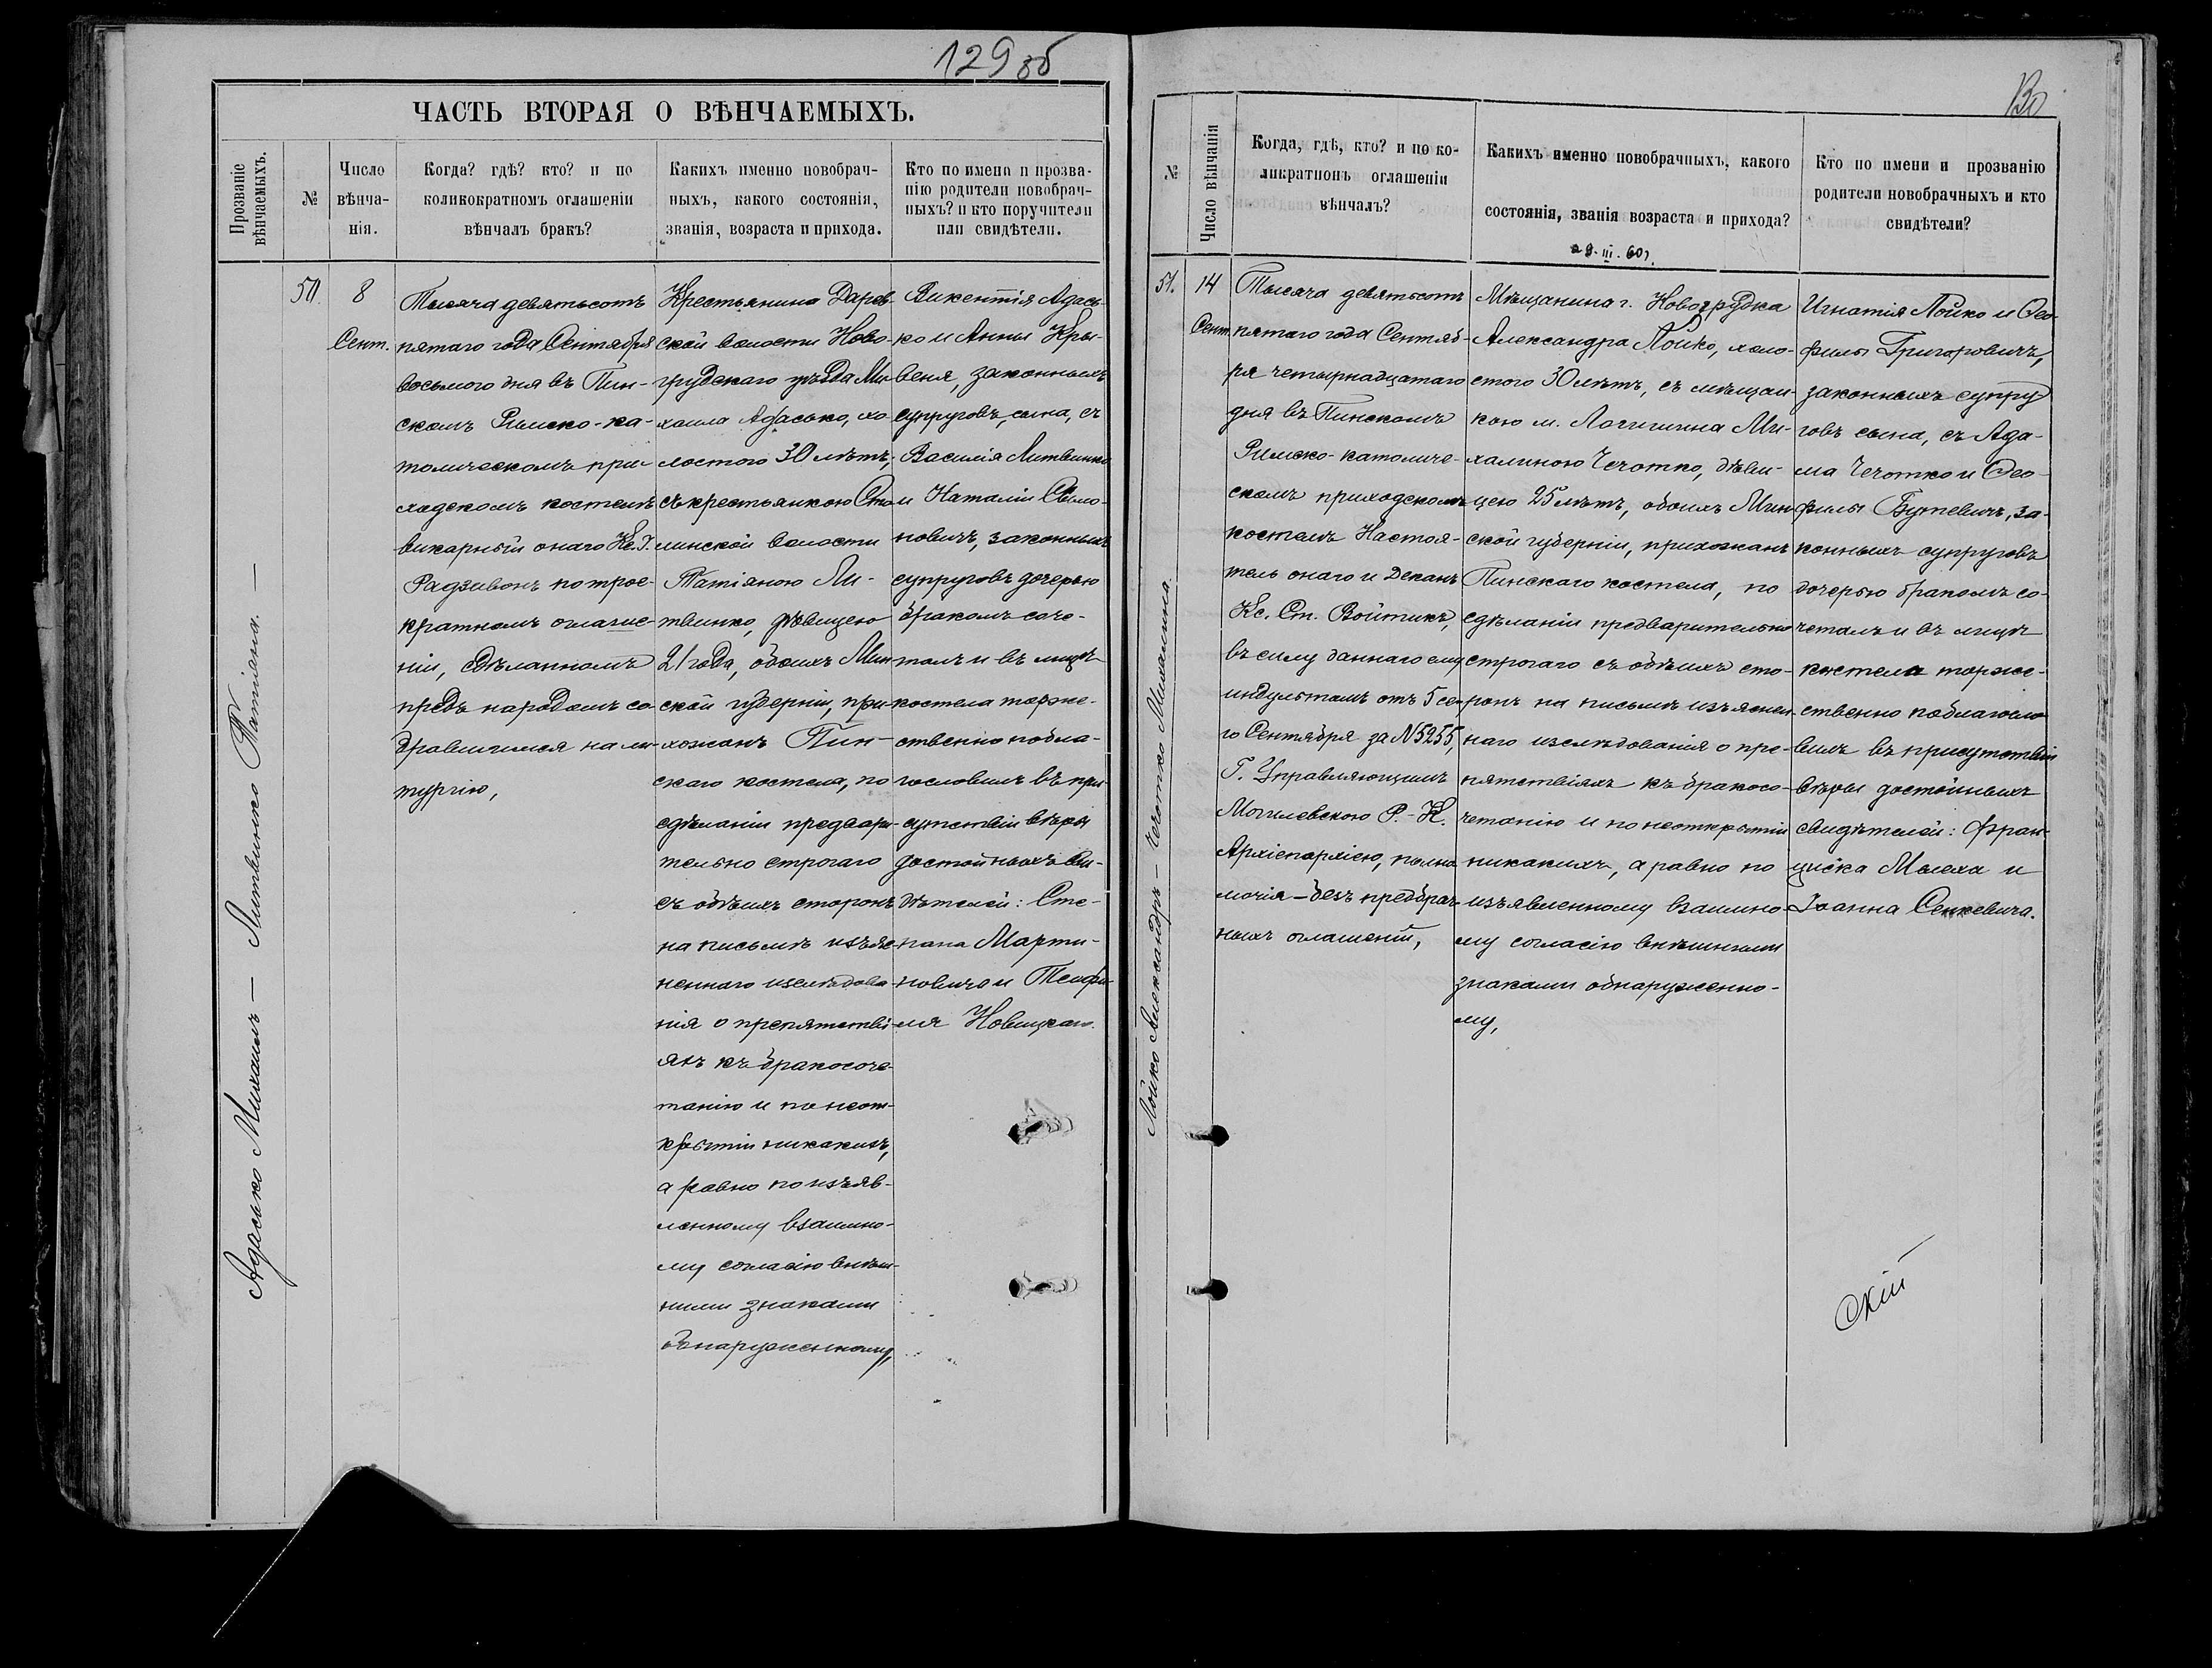 129 об
ЧАСТЬ ВТОРАЯ О ВѢНЧАЕМЫХЪ.
Прозваніе вѣнчаемыхъ.
№
Число
вѣнча-
нія.
Когда? гдѣ? кто? и по
коликократномъ оглашеніи
вѣнчалъ бракъ?
Какихъ именно новобрач-
ныхъ, какого состоянія,
званія, возраста и прихода.
Кто по имени и прозва-
нію родители новобрач-
ныхъ? и кто поручители
или свидѣтели.
Адасько Михаилъ — Литвинко Татіяна. —
50.
8
Сент.
Тысяча девятьсотъ
пятаго года Сентября
восьмого дня въ Пин-
скомъ Римско-ка-
толическомъ при-
ходскомъ костелѣ
викарный онаго Кс. І.
Радзивонъ по трое-
кратномъ оглаше-
ніи, сдѣланномъ
предъ народомъ со-
бравшимся на ли-
тургію,
Крестьянина Дарев-
ской волости Ново-
грудскаго уѣзда Ми-
хаила Адасько, хо-
лостого 30 лѣтъ,
съ крестьянкою Сто-
линской волости
Татіяною Ли-
твинко, дѣвицею
21 года, обоихъ Мин-
ской губерніи, при-
хожанъ Пин-
скаго костела, по
сдѣланіи предвари-
тельно строгаго
съ обѣихъ сторонъ
на письмѣ изъяс-
неннаго изслѣдова-
нія о препятстві-
яхъ къ бракосоче-
танію и по неот-
крытіи никакихъ,
а равно по изъяв-
ленному взаимно-
му согласію внѣш-
ними знаками
обнаруженному,
Викентія Адась-
ко и Анны Кры-
веня, законныхъ
супруговъ, сына, съ
Василія Литвинко
и Наталіи
новичъ, законныхъ
супруговъ дочерью
бракомъ соче-
талъ и въ лицѣ
костела торже-
ственно побла-
гословилъ въ при-
сутствіи вѣры
достойныхъ сви-
дѣтелей: Сте-
пана Марти-
новича и Теофи-
ля Новицкаго.
130
№
Число вѣнчанія
Когда, гдѣ, кто? и по ко-
ликратномъ оглашеніи
вѣнчалъ?
Какихъ именно новобрачныхъ, какого
состоянія, званія возраста и прихода?
29. III. 60 г.
Кто по имени и прозванію
родители новобрачныхъ и кто
свидѣтели?
Лойко Александръ — Чечотко Михалина.
51.
14
Сент.
Тысяча девятьсотъ
пятаго года Сентяб-
ря четырнадцатаго
дня въ Пинскомъ
Римско-католиче-
скомъ приходскомъ
костелѣ Настоя-
тель онаго и Деканъ
Кс. Ст. Войтикъ,
въ силу даннаго ему
индультомъ отъ 5 се-
го Сентября за N 5255,
Г. Управляющимъ
Могилевскою Р.-К.
Архіепархіею, полно-
мочія — безъ предбрач-
ныхъ оглашеній,
Мѣщанина г. Новогрудка
Александра Лойко, холо-
стого 30 лѣтъ, съ мѣщан-
кою м. Логишина Ми-
халиною Чечотко, дѣви-
цею 25 лѣтъ, обоихъ Мин-
ской губерніи, прихожанъ
Пинскаго костела, по
сдѣланіи предварительно
строгаго съ обѣихъ сто-
ронъ на письмѣ изъяснен-
наго изслѣдованія о пре-
пятствіяхъ къ бракосо-
четанію и по неоткрытіи
никакихъ, а равно по
изъявленному взаимно-
му согласію внѣшними
знаками обнаруженно-
му,
Игнатія Лойко и Ѳео-
филы Григоровичъ,
законныхъ супру-
говъ сына, съ Ада-
ма Чечотко и Ѳео-
филы Бутевичъ, за-
конныхъ супруговъ
дочерью бракомъ со-
четалъ и въ лицѣ
костела торже-
ственно поблагосло-
вилъ въ присутствіи
вѣры достойныхъ
свидѣтелей: Фран-
циска Мелеха и
Іоанна Сенкевича.